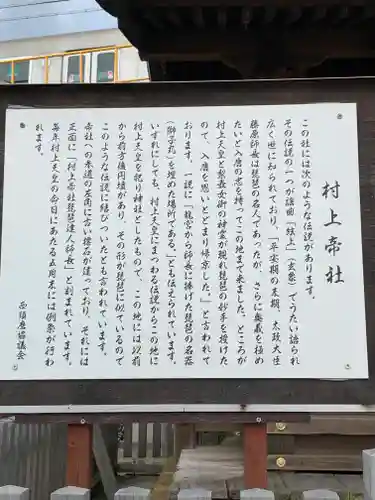 村上帝社
この社には次のような伝説があります。
その伝説の一つが謡曲「絃上」（玄象）でうたい語られ
広く世に知られており、「平安期の末期、太政大臣
藤原師長は琵琶の名人であったが、さらに奥義を極め
たいと入唐の志を持ってこの地まで来ました。ところが
村上天皇と梨壺女御の神霊が現れ琵琶の妙手を授けた
ので、入唐を思いとどまり帰京した。」と言われて
おります。一説に「龍宮から師長に捧げた琵琶の名器
（獅子丸）を埋めた場所である。」とも伝えられています。
いずれにしても、村上天皇にまつわる伝説からこの地に
村上天皇を祀り神社としたもので、この地には以前
から前方後円墳があり、その形が琵琶に似ているので
このような伝説に結びついたとも言われています。
帝社への参道の左角に古い標石が建っており、それには
正面に「村上帝社琵琶達人師長」と刻まれています。
毎年村上天皇の命日にあたる五月末には例祭が行わ
れます。
西須磨協議会